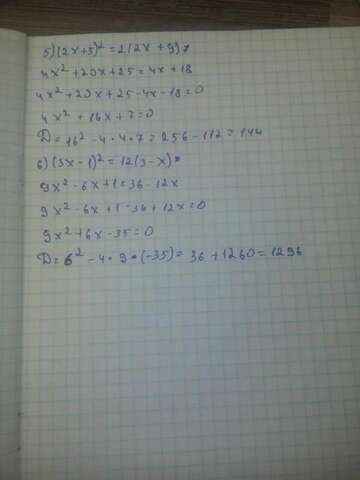 5) (2x+5)² = 2(2x+9);
4x² + 20x + 25 = 4x + 18
4x² + 20x + 25 - 4x - 18 = 0
4x² + 16x + 7 = 0
D = 16² - 4 · 4 · 7 = 256 - 112 = 144
6) (3x - 1)² = 12(3 - x).
9x² - 6x + 1 = 36 - 12x
9x² - 6x + 1 - 36 + 12x = 0
9x² + 6x - 35 = 0
D = 6² - 4 · 9 · (-35) = 36 + 1260 = 1296